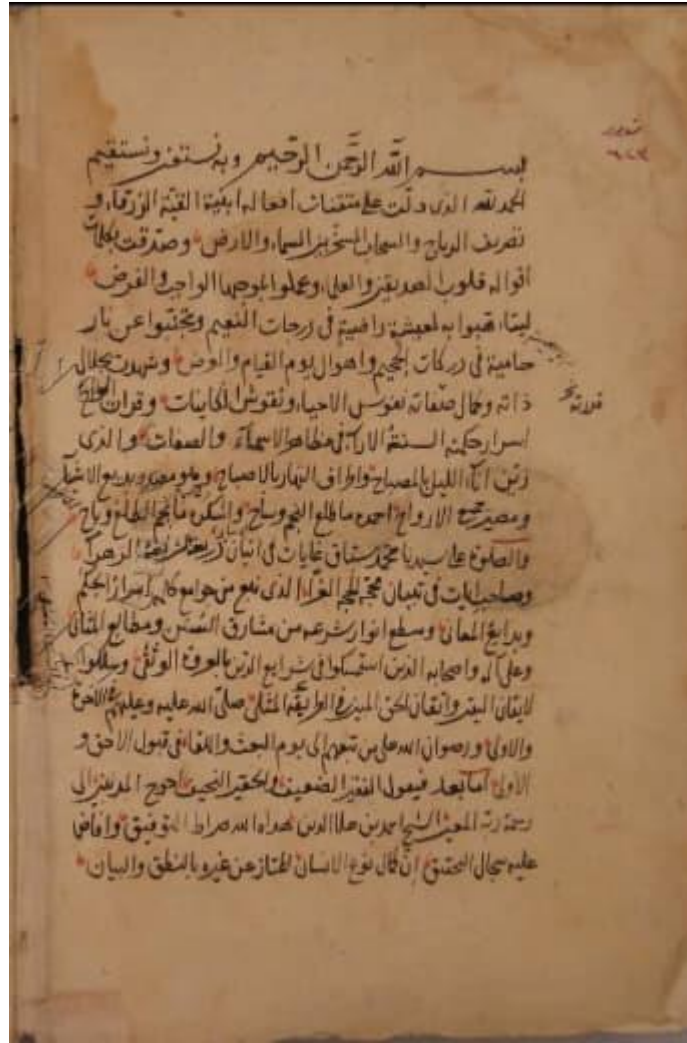 بسم الله الرحمن الرحيم وبه نستعين ونستقيم
الحمد لله الذى دلت على متقنات أفعاله ابنية القبة الزرقاء و
تصريف الرياح والسحاب المسخر بين السماء والارض وصدقت بكلمات
أقواله قلوب الصديقين والعلماء وعملوا بموجبها الواجب والفرض
به لمعيشة راضية فى درجات النعيم ويجتنبوا عن نار
حامية فى دركات الجحيم واهوال يوم القيام والعرض وشهدت بجلال
ذاته وكمال صفاته نفوس الاحياء ونقوش الكاينات وقرأن
اسرار حكمته السنة فى مظاهر الاسماء والصفات والذى
زين اناء الليل بالمصباح واطراف النهار بالاصباح وهو بديع
ومصير الارواح احمده ما طلع النجم وساح واشكره ما نجم الطلع
والصلوة على سيدنا محمد غايات فى
وصاحب ايات فى تبيان الغراء الذى نبع من جوامع كلمه اسرار الحكم
وبدايع المعانى وسطع انوار شرعه من مشارق السنن ومطالع المثانى
وعلى آله واصحابه الذين استمسكوا فى شرايع الدين بالعروة الوثقى وسلكوا
لايقان اليقين واتقان الحق المبين فى الطريقة المثلى صلى الله عليه وعليهم فى الاخرة
والاولى ورضوان الله على من تبعهم الى يوم البعث واللقاء فى قبول الاحق و
الاولى اما بعد فيقول الفقير الضعيف والحقير النحيف احوج الى
رحمة ربه المعين الشيخ احمد بن علاء الدين هداه الله صراط التوفيق وافاض
عليه سجال التحقيق ان كمال نوع الانسان الممتاز عن غيره بالنطق والبيان